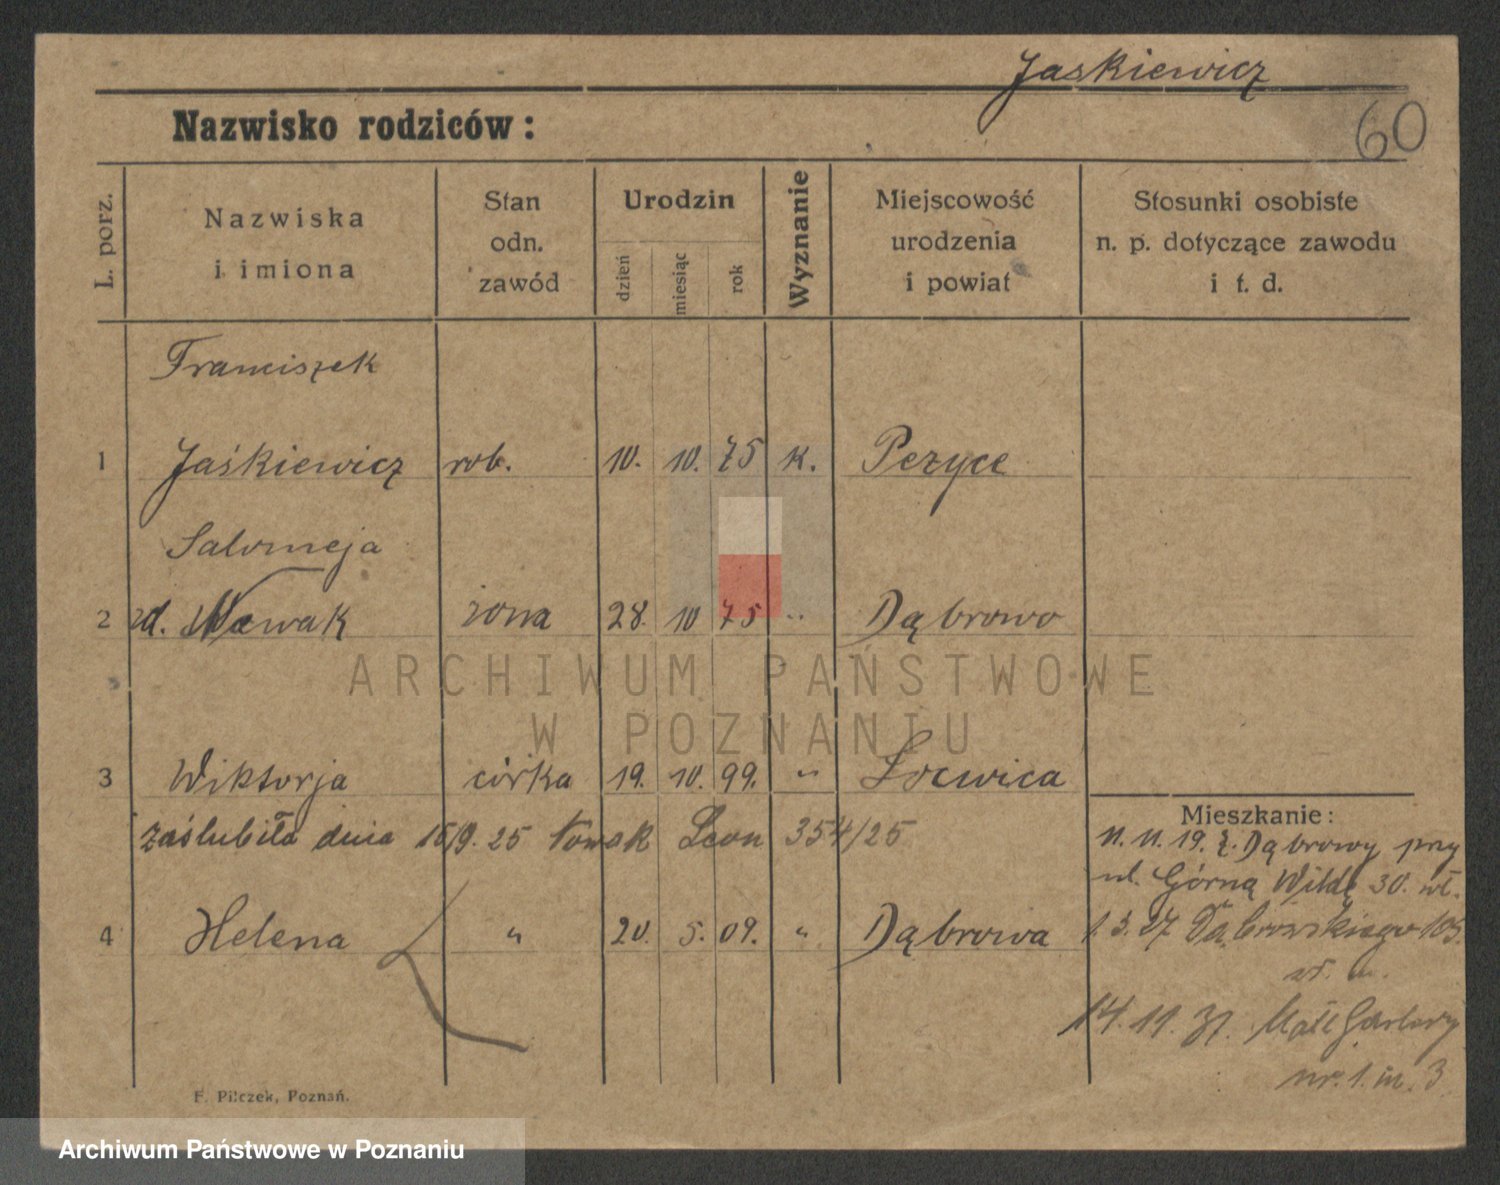 Jaskiewicz
60
Nazwisko rodziców:
L. porz.
Nazwiska
i imiona
Stan
odn.
zawód
Urodzin
dzień
miesiąc
rok
Wyznanie
Miejscowość
urodzenia
i powiat
Stosunki osobiste
n. p. dotyczące zawodu
i t. d.
Franciszek
1 Jaśkiewicz rob. 10. 10. 75 k. Pezyce
Salomeja
2 zd. Nowak żona 28. 10 75 " Dąbrowo
ARCHIWUM PAŃSTWOWE
W POZNANIU
3 Wiktorja córka 19. 10. 99. "
zaślubiła dnia 15/9. 25 Nowak Leon 354/25
4 Helena " 20. 5. 09. " Dąbrowa
Mieszkanie:
11. 11. 19. z. Dąbrowy przy
ul. Górną Wildę 30.
1. 3. 27 Dąbrowskiego 105.
14. 11. 31. Małe Garbary
nr. 1. m. 3
F. Pilczek, Poznań.
Archiwum Państwowe w Poznaniu